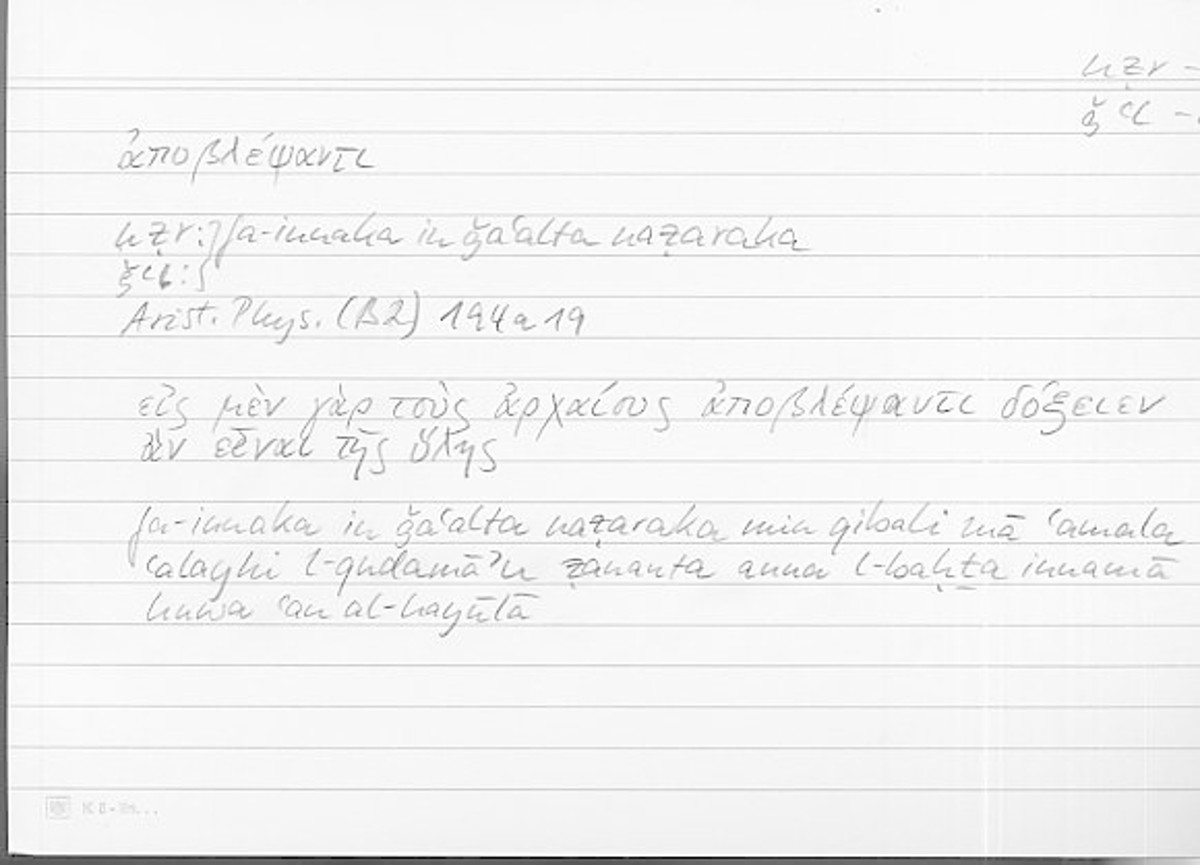 nẓr -
ǧʿl -
ἀποβλέψαντι
nẓr: } fa-innaka in ǧaʿalta naẓaraka
ǧʿl: }
Arist. Phys. (B2) 194a19
εἰς μὲν γὰρ τοὺς ἀρχαίους ἀποβλέψαντι δόξειεν
ἂν εἶναι τῆς ὕλης
fa-innaka in ǧaʿalta naẓaraka min qibali mā ʿamala
ʿalayhi l-qudamāʾu ẓananta anna l-baḥṯa innamā
huwa ʿan al-hayūlā